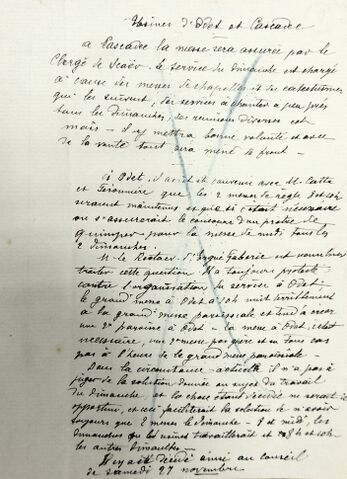 Usines d'Odet et Cascadec
à Cascadec la messe sera assurée par le
Clergé de Scaër. le service du dimanche est chargé
à cause des messes de chapelles et des catéchismes
qui les suivent, des services à chanter à peu près
tous les dimanches, des réunions diverses et
mais - il y mettra bonne volonté et avec
de la santé tout sera mené de front -
à Odet, il avait été convenu avec M. Cotta
et que les 2 messes de règle 8 et 10h
seraient maintenues et que si c'était nécessaire
on s'assurerait le concours d'un prêtre de
quimper pour la messe de midi tous les
2 dimanches.
M. le Recteur d'Ergué Gabéric est venu
traiter cette question. Il a toujours protesté
contre l'organisation du service à Odet
le grand messe à Odet à 10h nuit terriblement
à la grand' messe paroissiale et tend à créer
une 2e paroisse à Odet - la messe à Odet, est
nécessaire, une 2e messe peut être et en tous cas
pas à l'heure de la grand messe paroissiale -
Dans la circonstance actuelle il n'a pas à
juger de la solution donnée au sujet du travail
du dimanche et la chose étant décidée ne serait-il
opportun, et ceci faciliterait la solution de n'avoir
toujours que 2 messes le dimanche - 8 et midi, les
dimanches où les usines travailleraient et 8h et 10h
les autres dimanches -
Il y a été décidé ainsi au conseil
de samedi 27 novembre